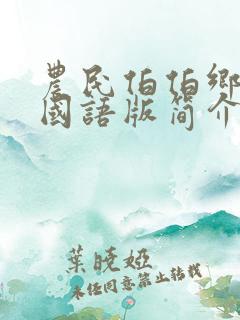 農民伯伯鄉
國語版簡介
葉曉婭
未經同意禁止轉載